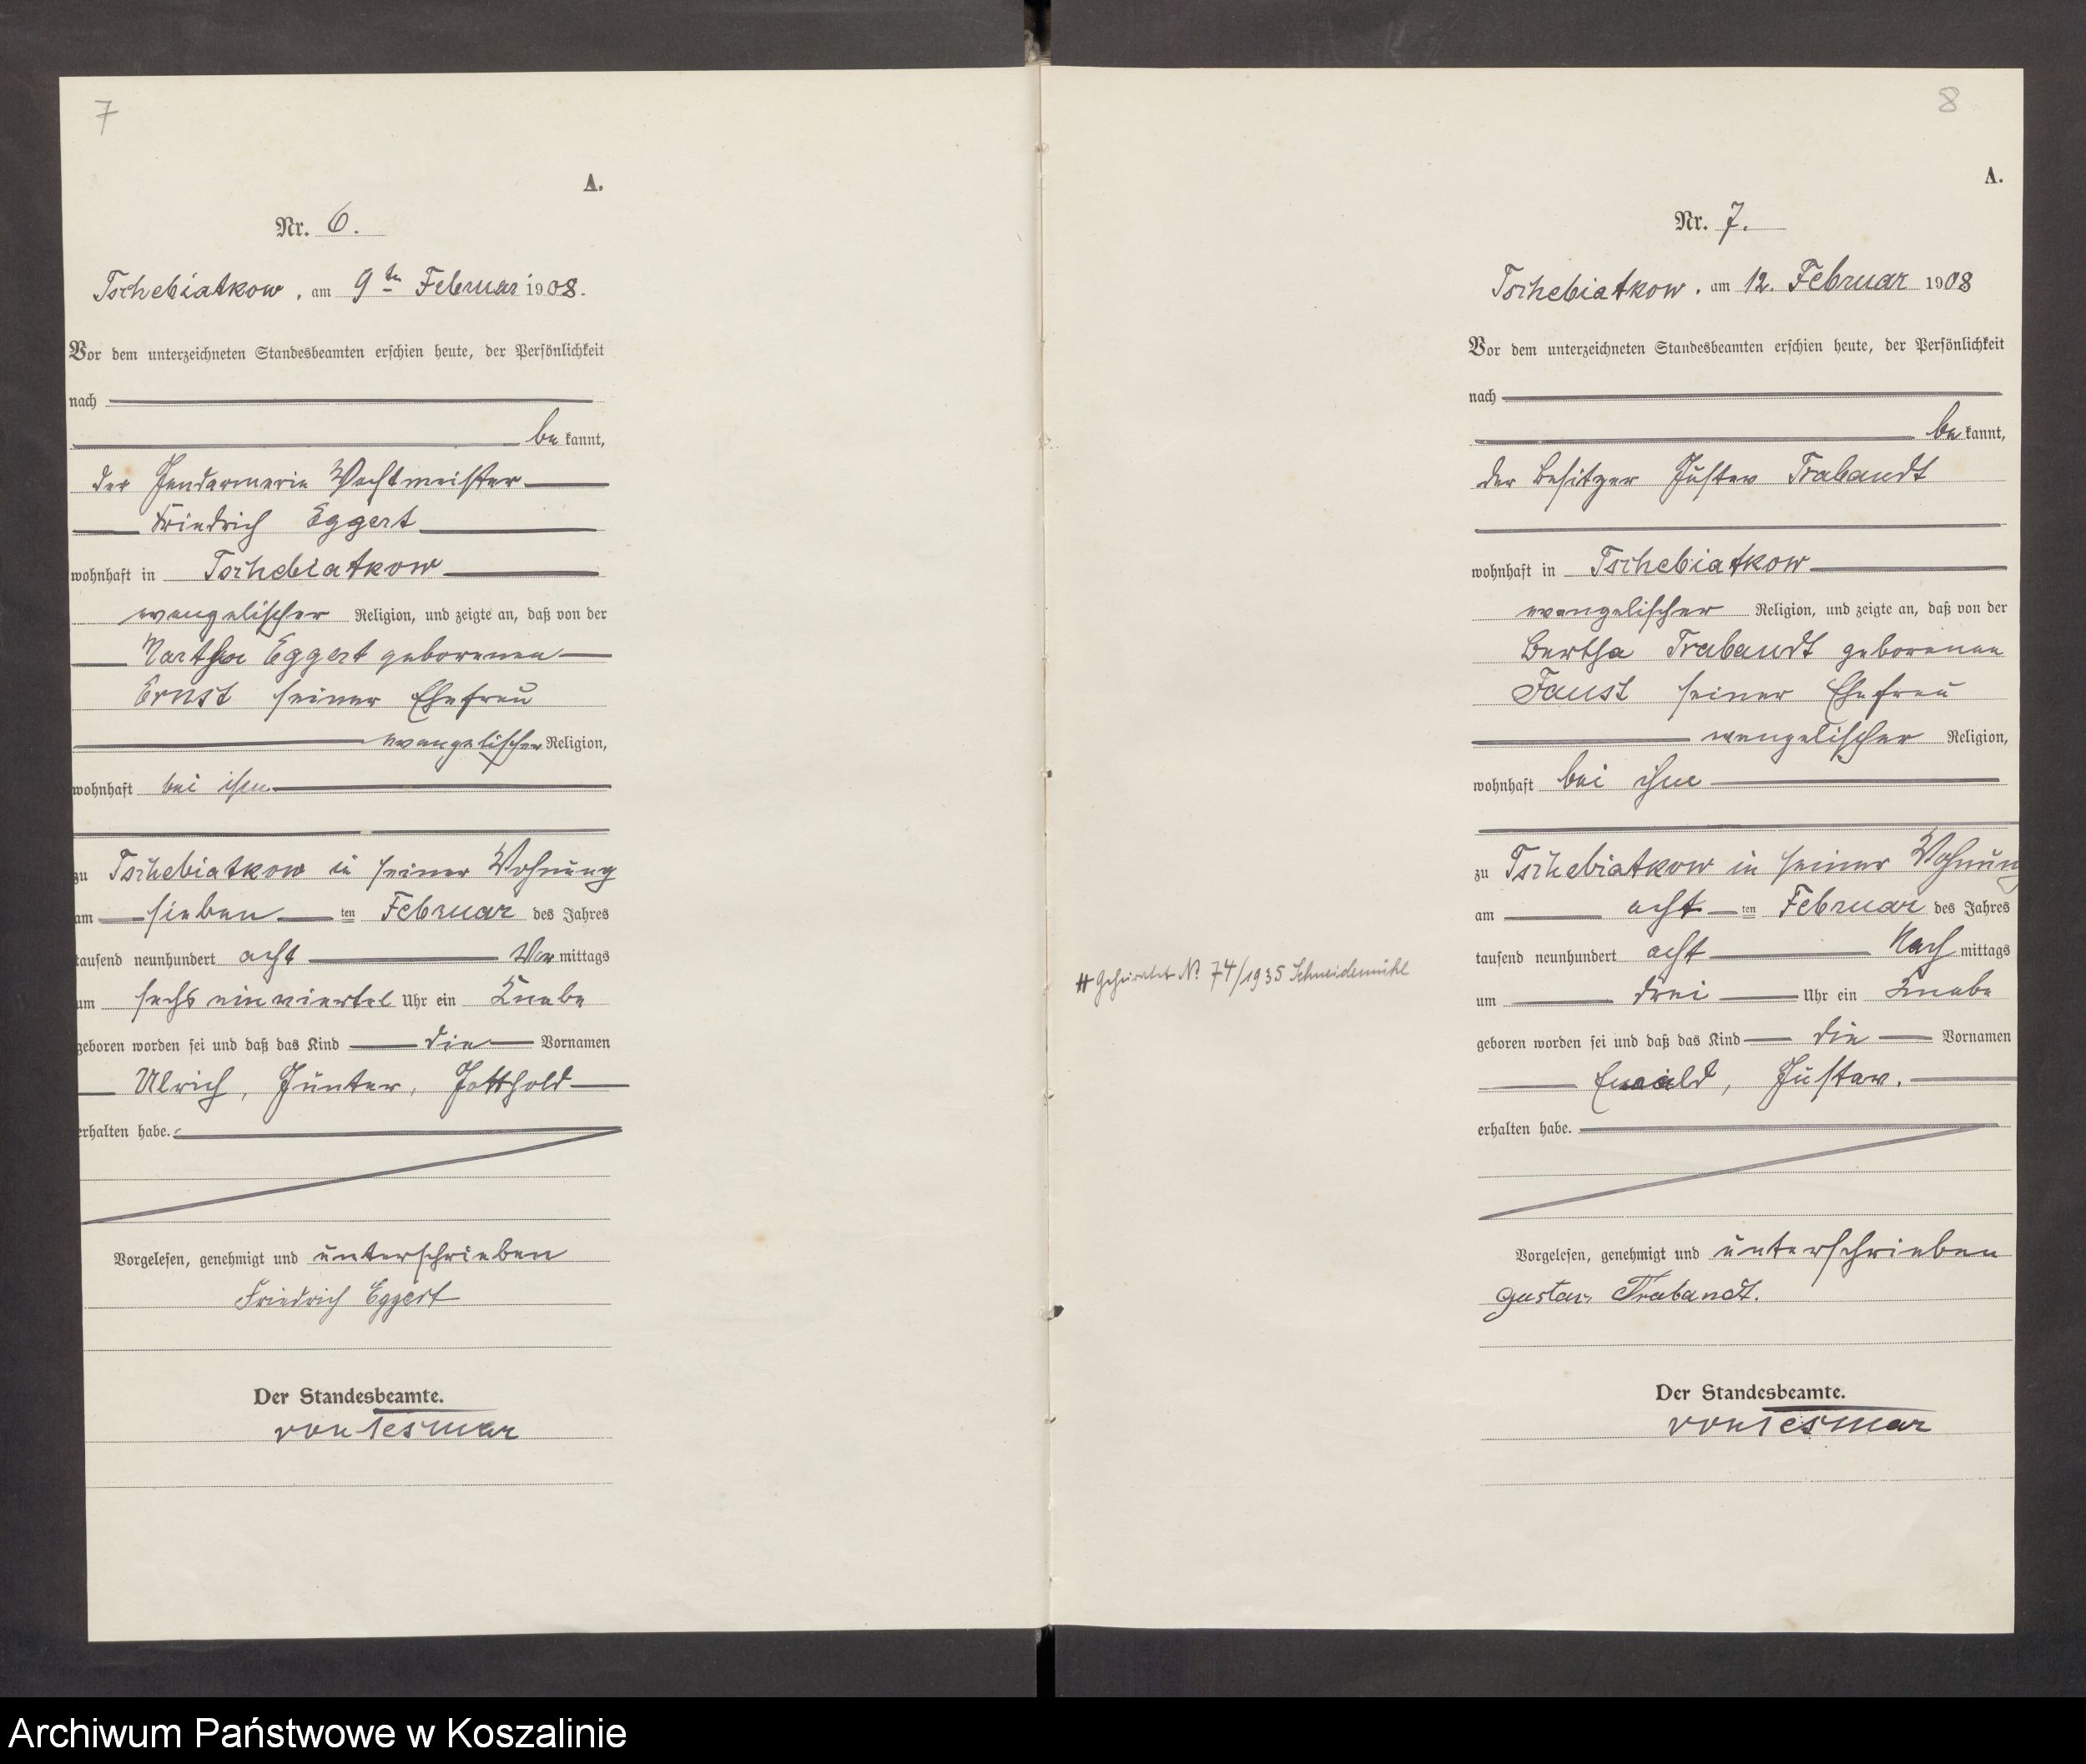 7
A.
Nr. 6.
Tschebiatkow, am 9ten Februar 1908.
Vor dem unterzeichneten Standesbeamten erschien heute, der Persönlichkeit
nach
be kannt,
der Gendarmerie Wachtmeister
Friedrich Eggert
wohnhaft in Tschebiatkow
evangelischer Religion, und zeigte an, daß von der
Martha Eggert geborenen
Ernst seiner Ehefrau
evangelischer Religion,
wohnhaft bei ihm
zu Tschebiatkow in seiner Wohnung
am sieben ten Februar des Jahres
tausend neunhundert acht Vor mittags
um sechs einviertel Uhr ein Knabe
geboren worden sei und daß das Kind die Vornamen
Ulrich, Günter, Gotthold
erhalten habe.
Vorgelesen, genehmigt und unterschrieben
Friedrich Eggert
Der Standesbeamte.
von Tesmar
8
A.
Nr. 7.
Tschebiatkow, am 12. Februar 1908
Vor dem unterzeichneten Standesbeamten erschien heute, der Persönlichkeit
nach
be kannt,
der Besitzer Gustav Trabandt
wohnhaft in Tschebiatkow
evangelischer Religion, und zeigte an, daß von der
Bertha Trabandt geborenen
Faust seiner Ehefrau
evangelischer Religion,
wohnhaft bei ihm
zu Tschebiatkow in seiner Wohnung
am acht ten Februar des Jahres
tausend neunhundert acht Nach mittags
um drei Uhr ein Knabe
geboren worden sei und daß das Kind die Vornamen
Ewald, Gustav.
erhalten habe.
Vorgelesen, genehmigt und unterschrieben
Gustav Trabandt.
Der Standesbeamte.
von Tesmar
# Geheiratet No 74/1935 Schneidemühl
Archiwum Państwowe w Koszalinie